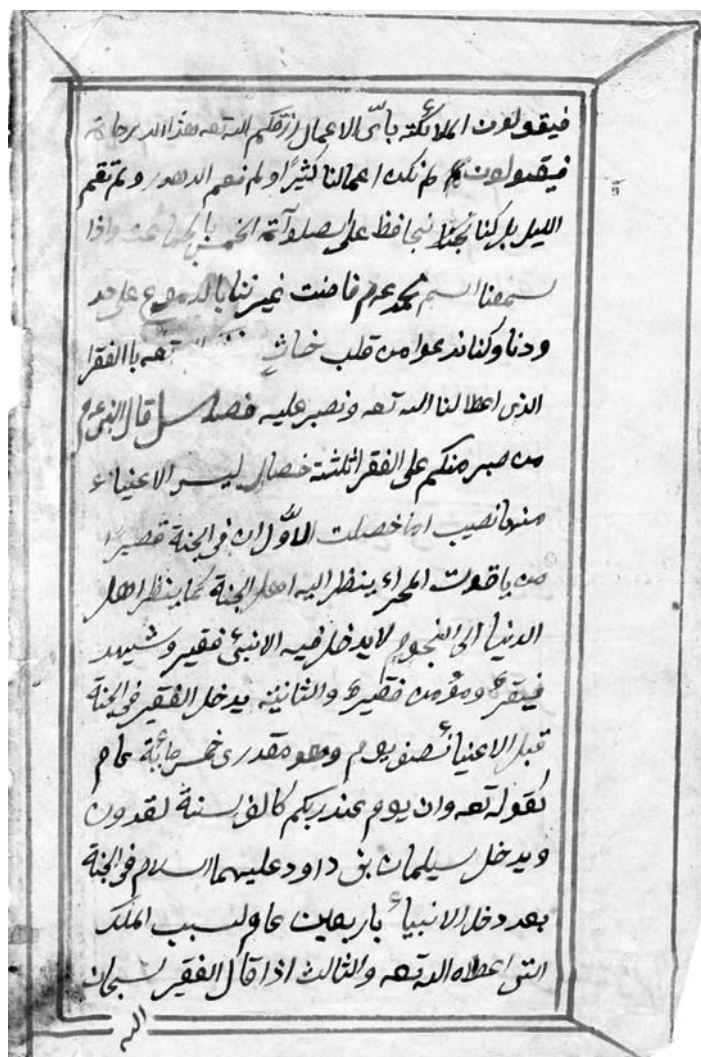 فيقولون الملائكة بائ الاعمال ارزقكم الله تعه هذا الدرجات
فيقولون لم نكن اعمالنا كثيرًا ولم نصم الدهور ولم نقم
الليل بل كنا نحافظ على الصلوآة الخمس واذا
سمعنا اسم محمد عم فاضت بالدموع على خد
ودنا وكنا ندعوا من قلب تعه باالفقر
الذى اعطا لنا الله تعه ونصبر عليه فصل قال النبى عم
من صبر منكم على الفقر ثلثة خصال ليس الاغنياء
منها نصيب اما خصلت الاوّل ان فى الجنة قصيرًا
من ياقوت الحمراء ينظر اليه اهل الجنة كما ينظر اهل
الدنيا الى النجوم لا يدخل فيه الا نبئ فقير وشهيد
فيقره ومؤمن فقيره والثانيه يدخل الفقير فى الجنة
قبل الاغنيائ نصف يوم وهو مقدرى خمس مائة عام
كقوله تعه وان يوم عند ربكم كالف سنة لقدون
ويدخل سيلمان بن داود عليهما السلام فى الجنة
بعد دخل الانبياء باربعين عام لسبب الملك
التى اعطاه الله تعه والثالث اذا قال الفقير سبحان
الله